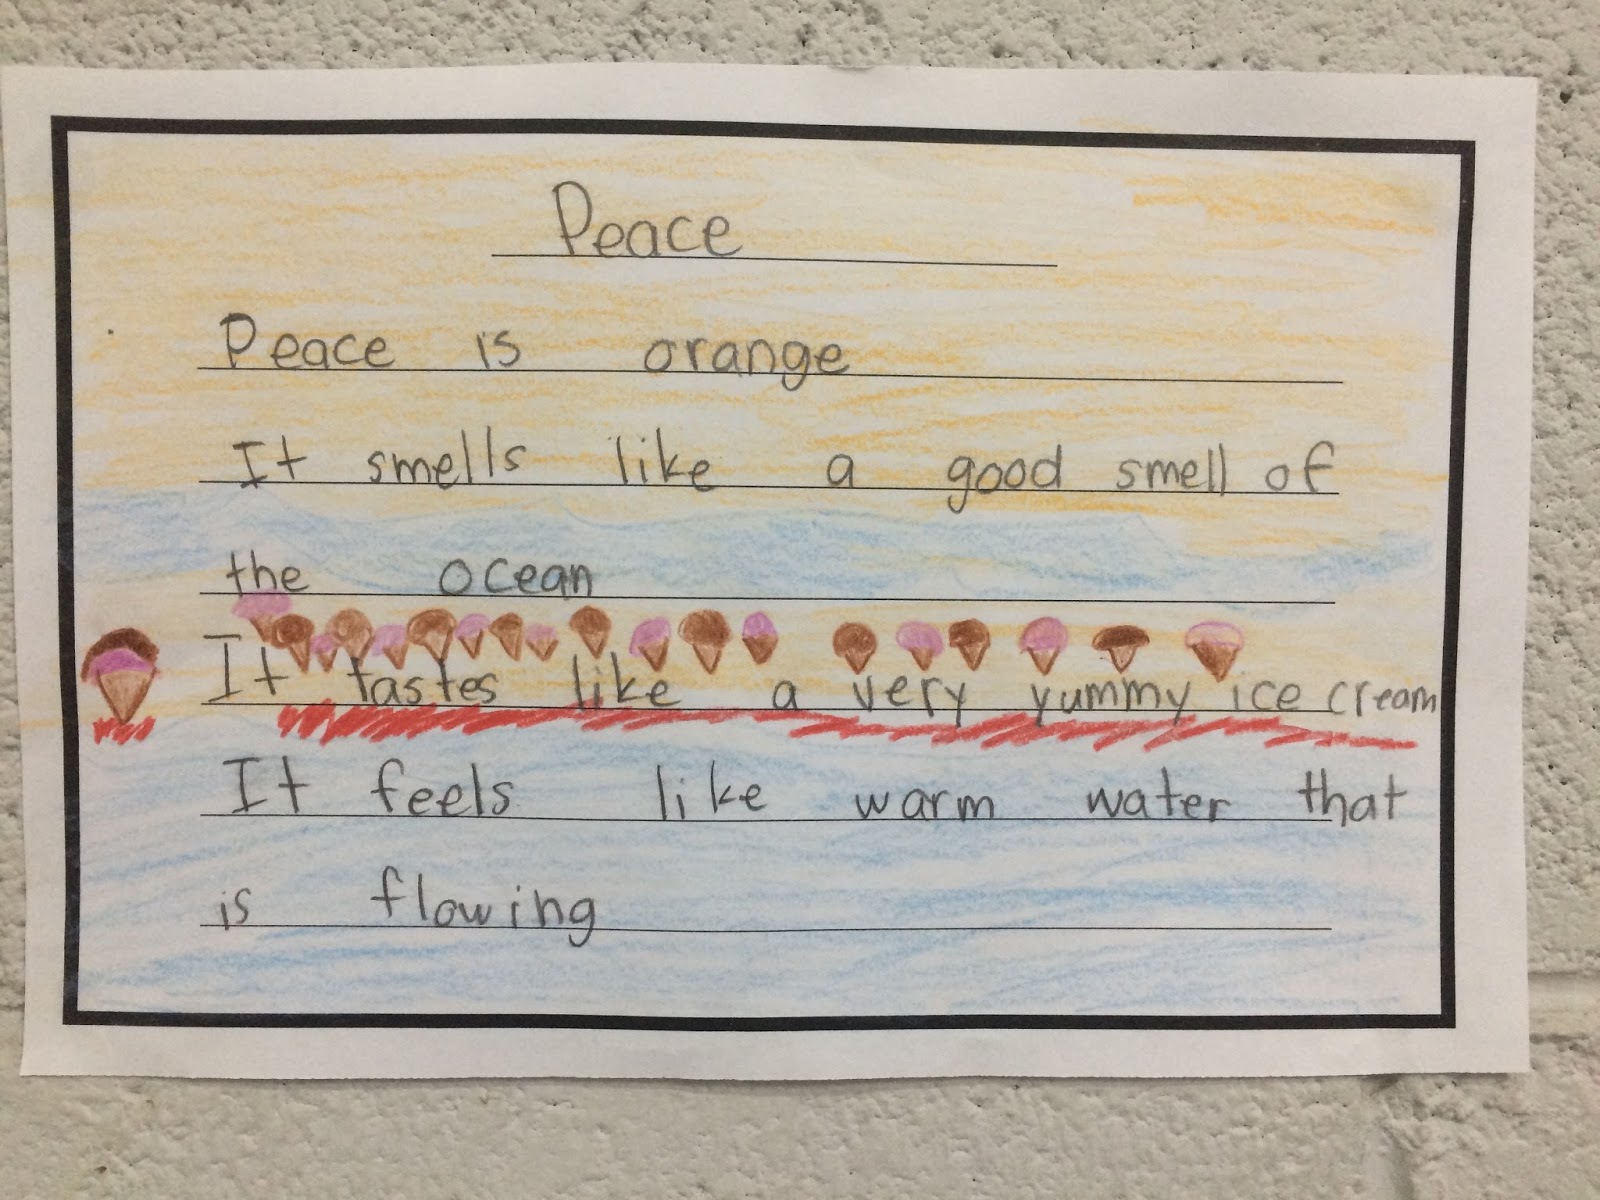 Peace
Peace is orange
It smells like a good smell of
the ocean
It tastes like a very yummy ice cream
It feels like warm water that
is flowing